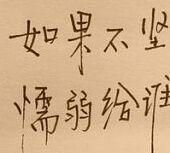 如果不坚
懦弱给谁